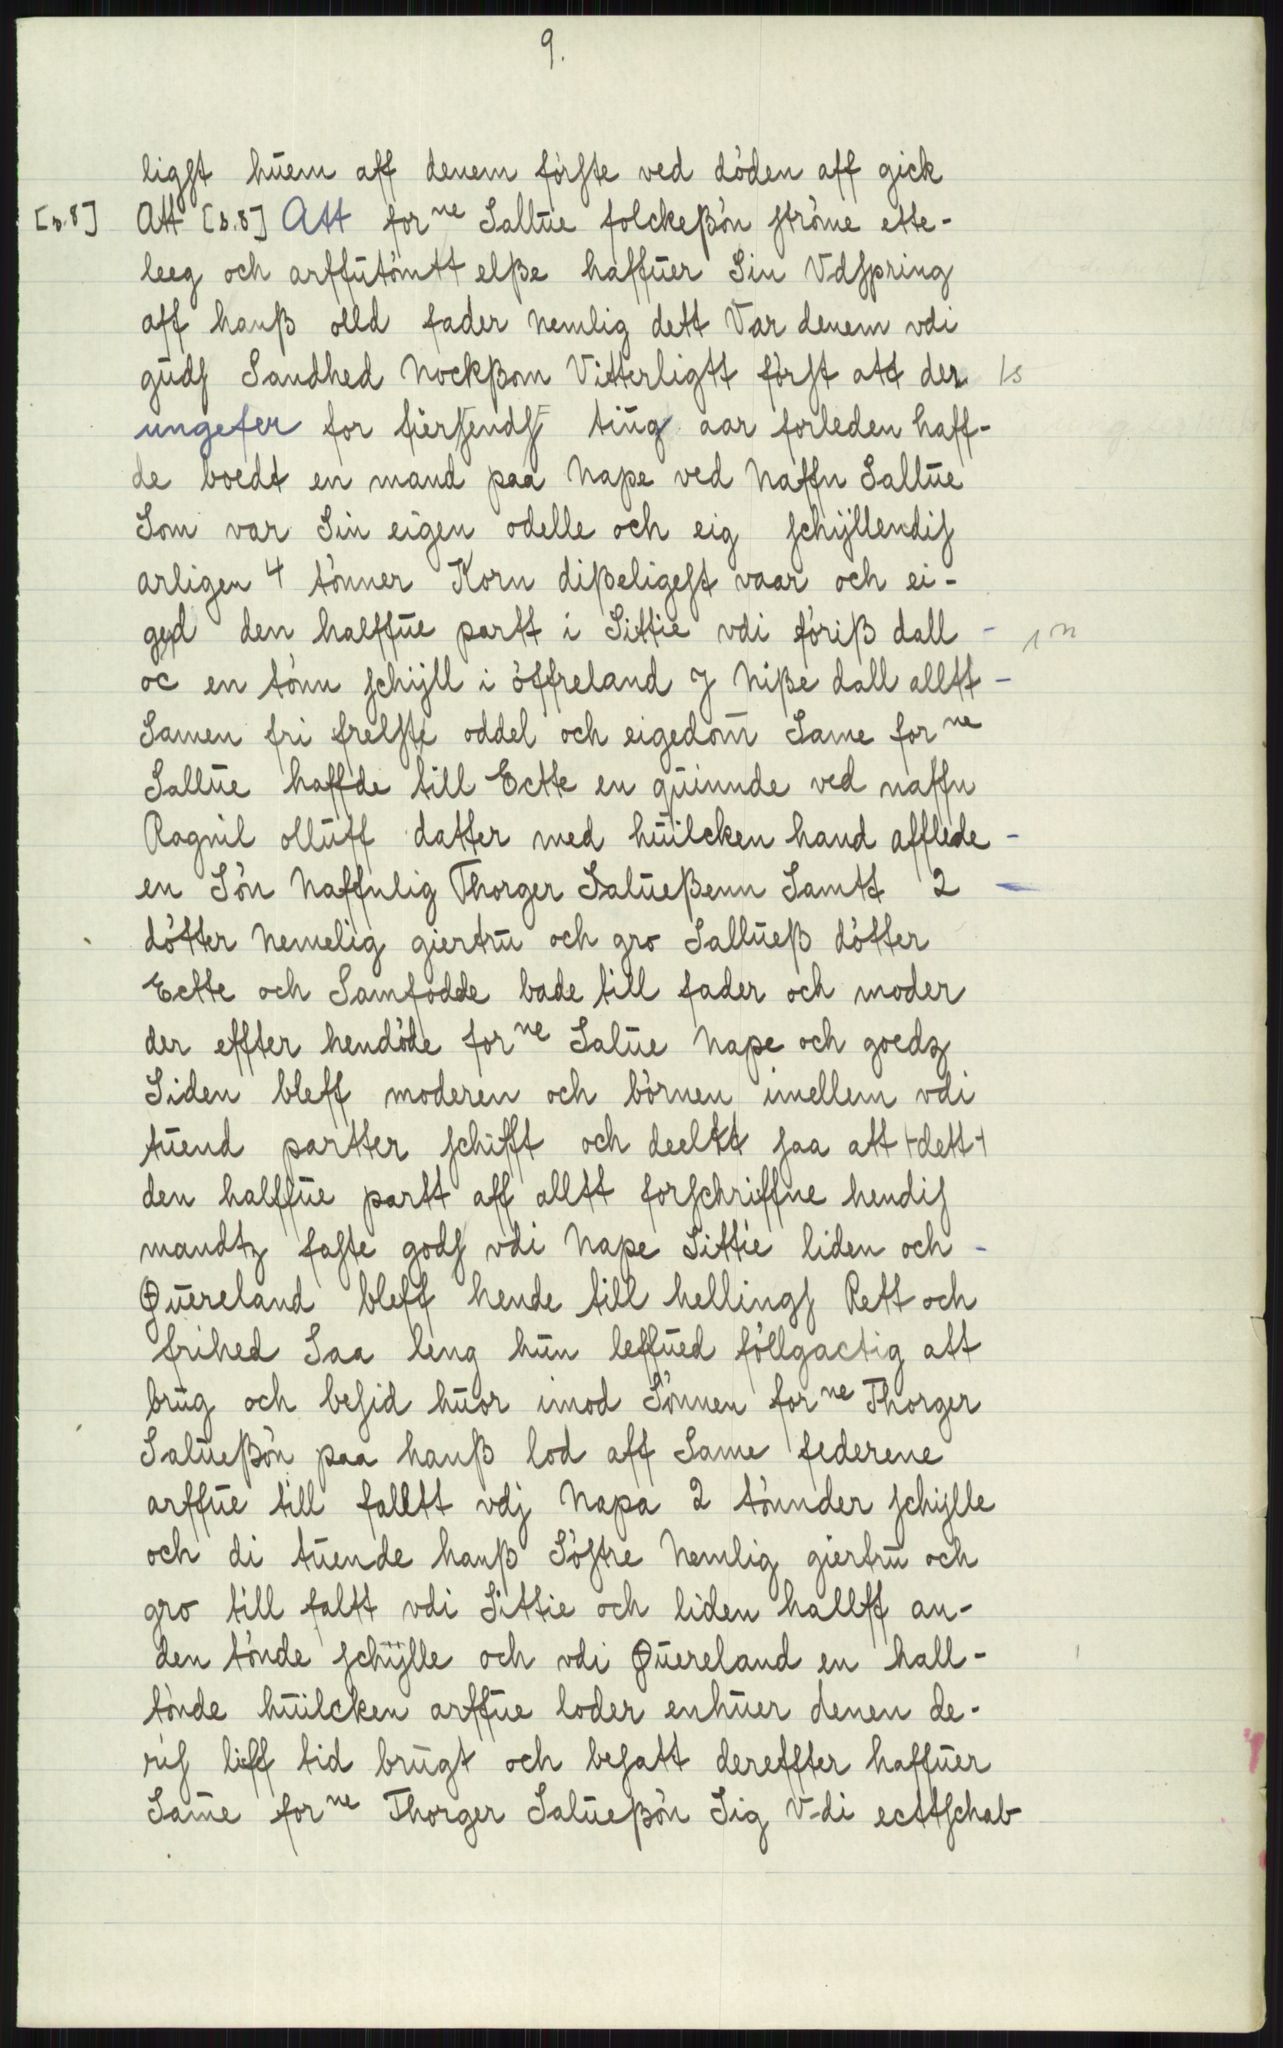 9.
ligst huem aff denem förste ved döden aff gick
[s.8] Att [s.8] Att for ne Sallue folckeßön ströme ette-
leeg och arffutömtt elße haffuer Sin Vdspring
aff hanß olld fader nemlig dett Var denem vdi
guds Sandhed Nockßom Vitterligtt först att der
ungefer for fiersends tiug aar forleden haff-
de boedt en mand paa Nape ved Naffn Sallue
Som var Sin eigen odelle och eig schÿllendis
arligen 4 tönner Korn dißeligest vaar och ei-
ged den halffue partt i Sittie vdi föriß dall -
oc en tönn schÿll i öffreland J Niße dall alltt -
Samen fri frelste oddel och eigedom̄ Same for ne
Sallue haffde till Ectte en quinnde ved naffn
Ragnil olluff datter med huilcken hand afflede -
en Sön Naffnlig Thorger Salueßenn Samtt 2 -
dötter Nemelig giertru och gro Sallueß dötter
Ectte och Samfodde bade till fader och moder
der effter hendöde for ne Salue Nape och goedz
Siden bleff moderen och börnen imellem vdi
tuend partter schifft och deeltt saa att +dett+
den halffue partt aff alltt forschriffne hendis
mandtz faste gods vdi Nape Sittie liden och -
Quereland bleff hende till hellings Rett och
frihed Saa leng hun leffued föllgactig att
brug och besid huor imod Sönnen for ne Thorger
Salueßön paa hanß lod aff Same federene
arffue till falltt vdj Napa 2 tönnder schÿlle
och di tuende hanß Söstre Nemlig giertru och
gro till faltt vdi Sittie och liden hallff an-
den tönde schÿlle och vdi Quereland en hall-
tönde huilcken arffue loder enhuer denen de-
ris liff tid brugt och besatt dereffter haffuer
Same for ne Thorger Salueßön Sig V-di ecttschab